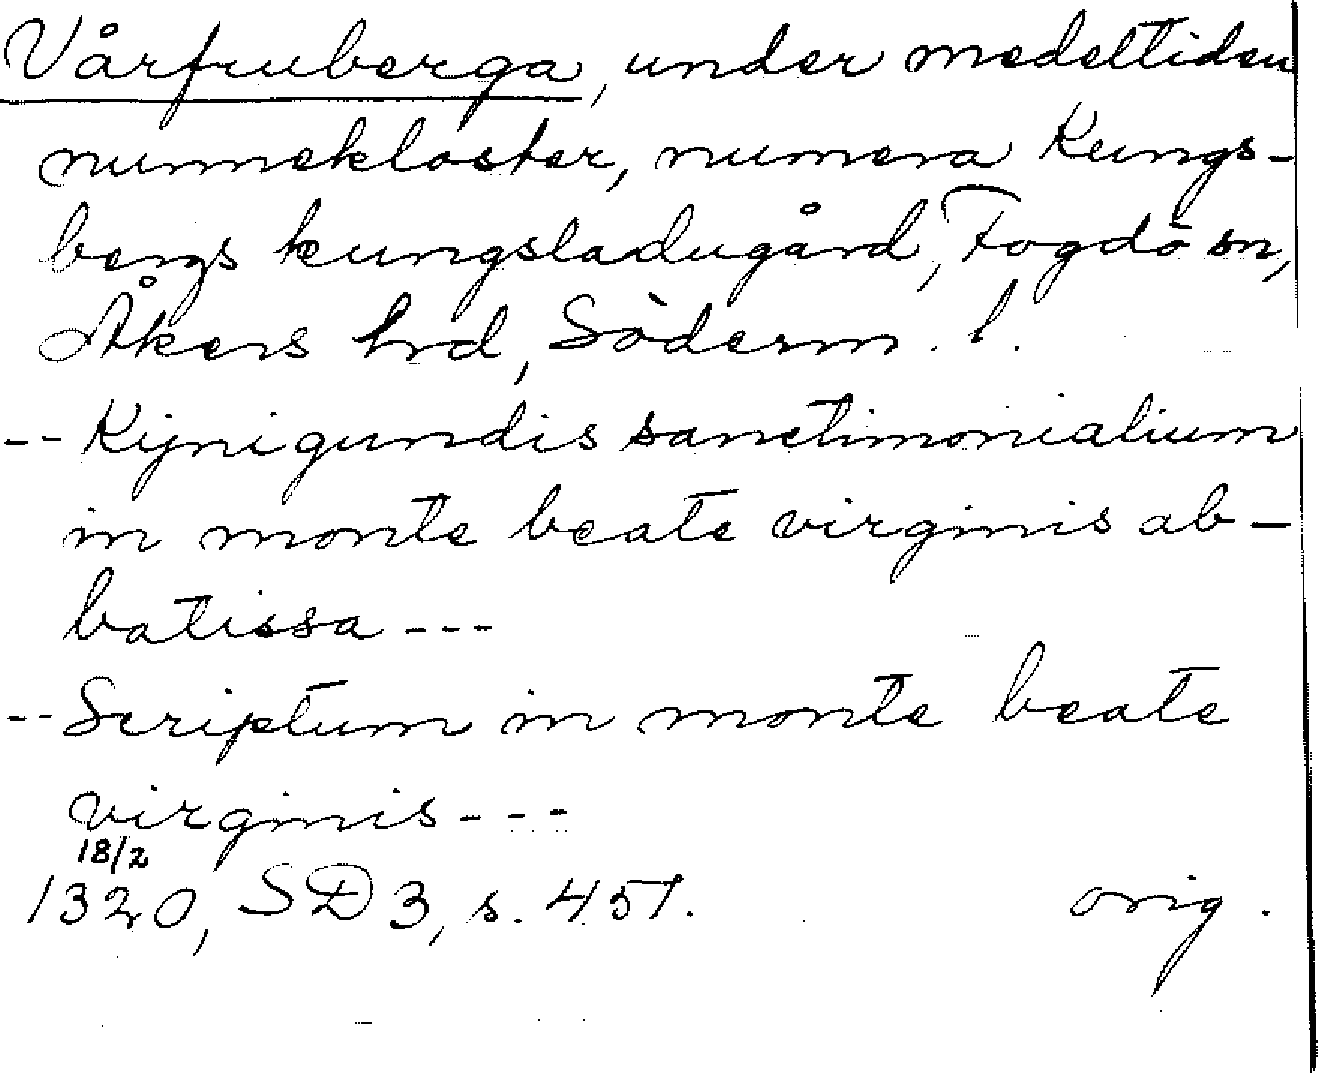 Vårfruberga, under medeltiden
nunnekloster, numera Kungs-
bergs kungsladugård, Fogdö sn,
Åkers hrd, Söderm. l.
-- Kijnigundis sanctimonialium
in monte beate virginis ab-
batissa ---
-- Scriptum in monte beate
virginis ---
18/2
1320, SD 3, s. 451. orig.